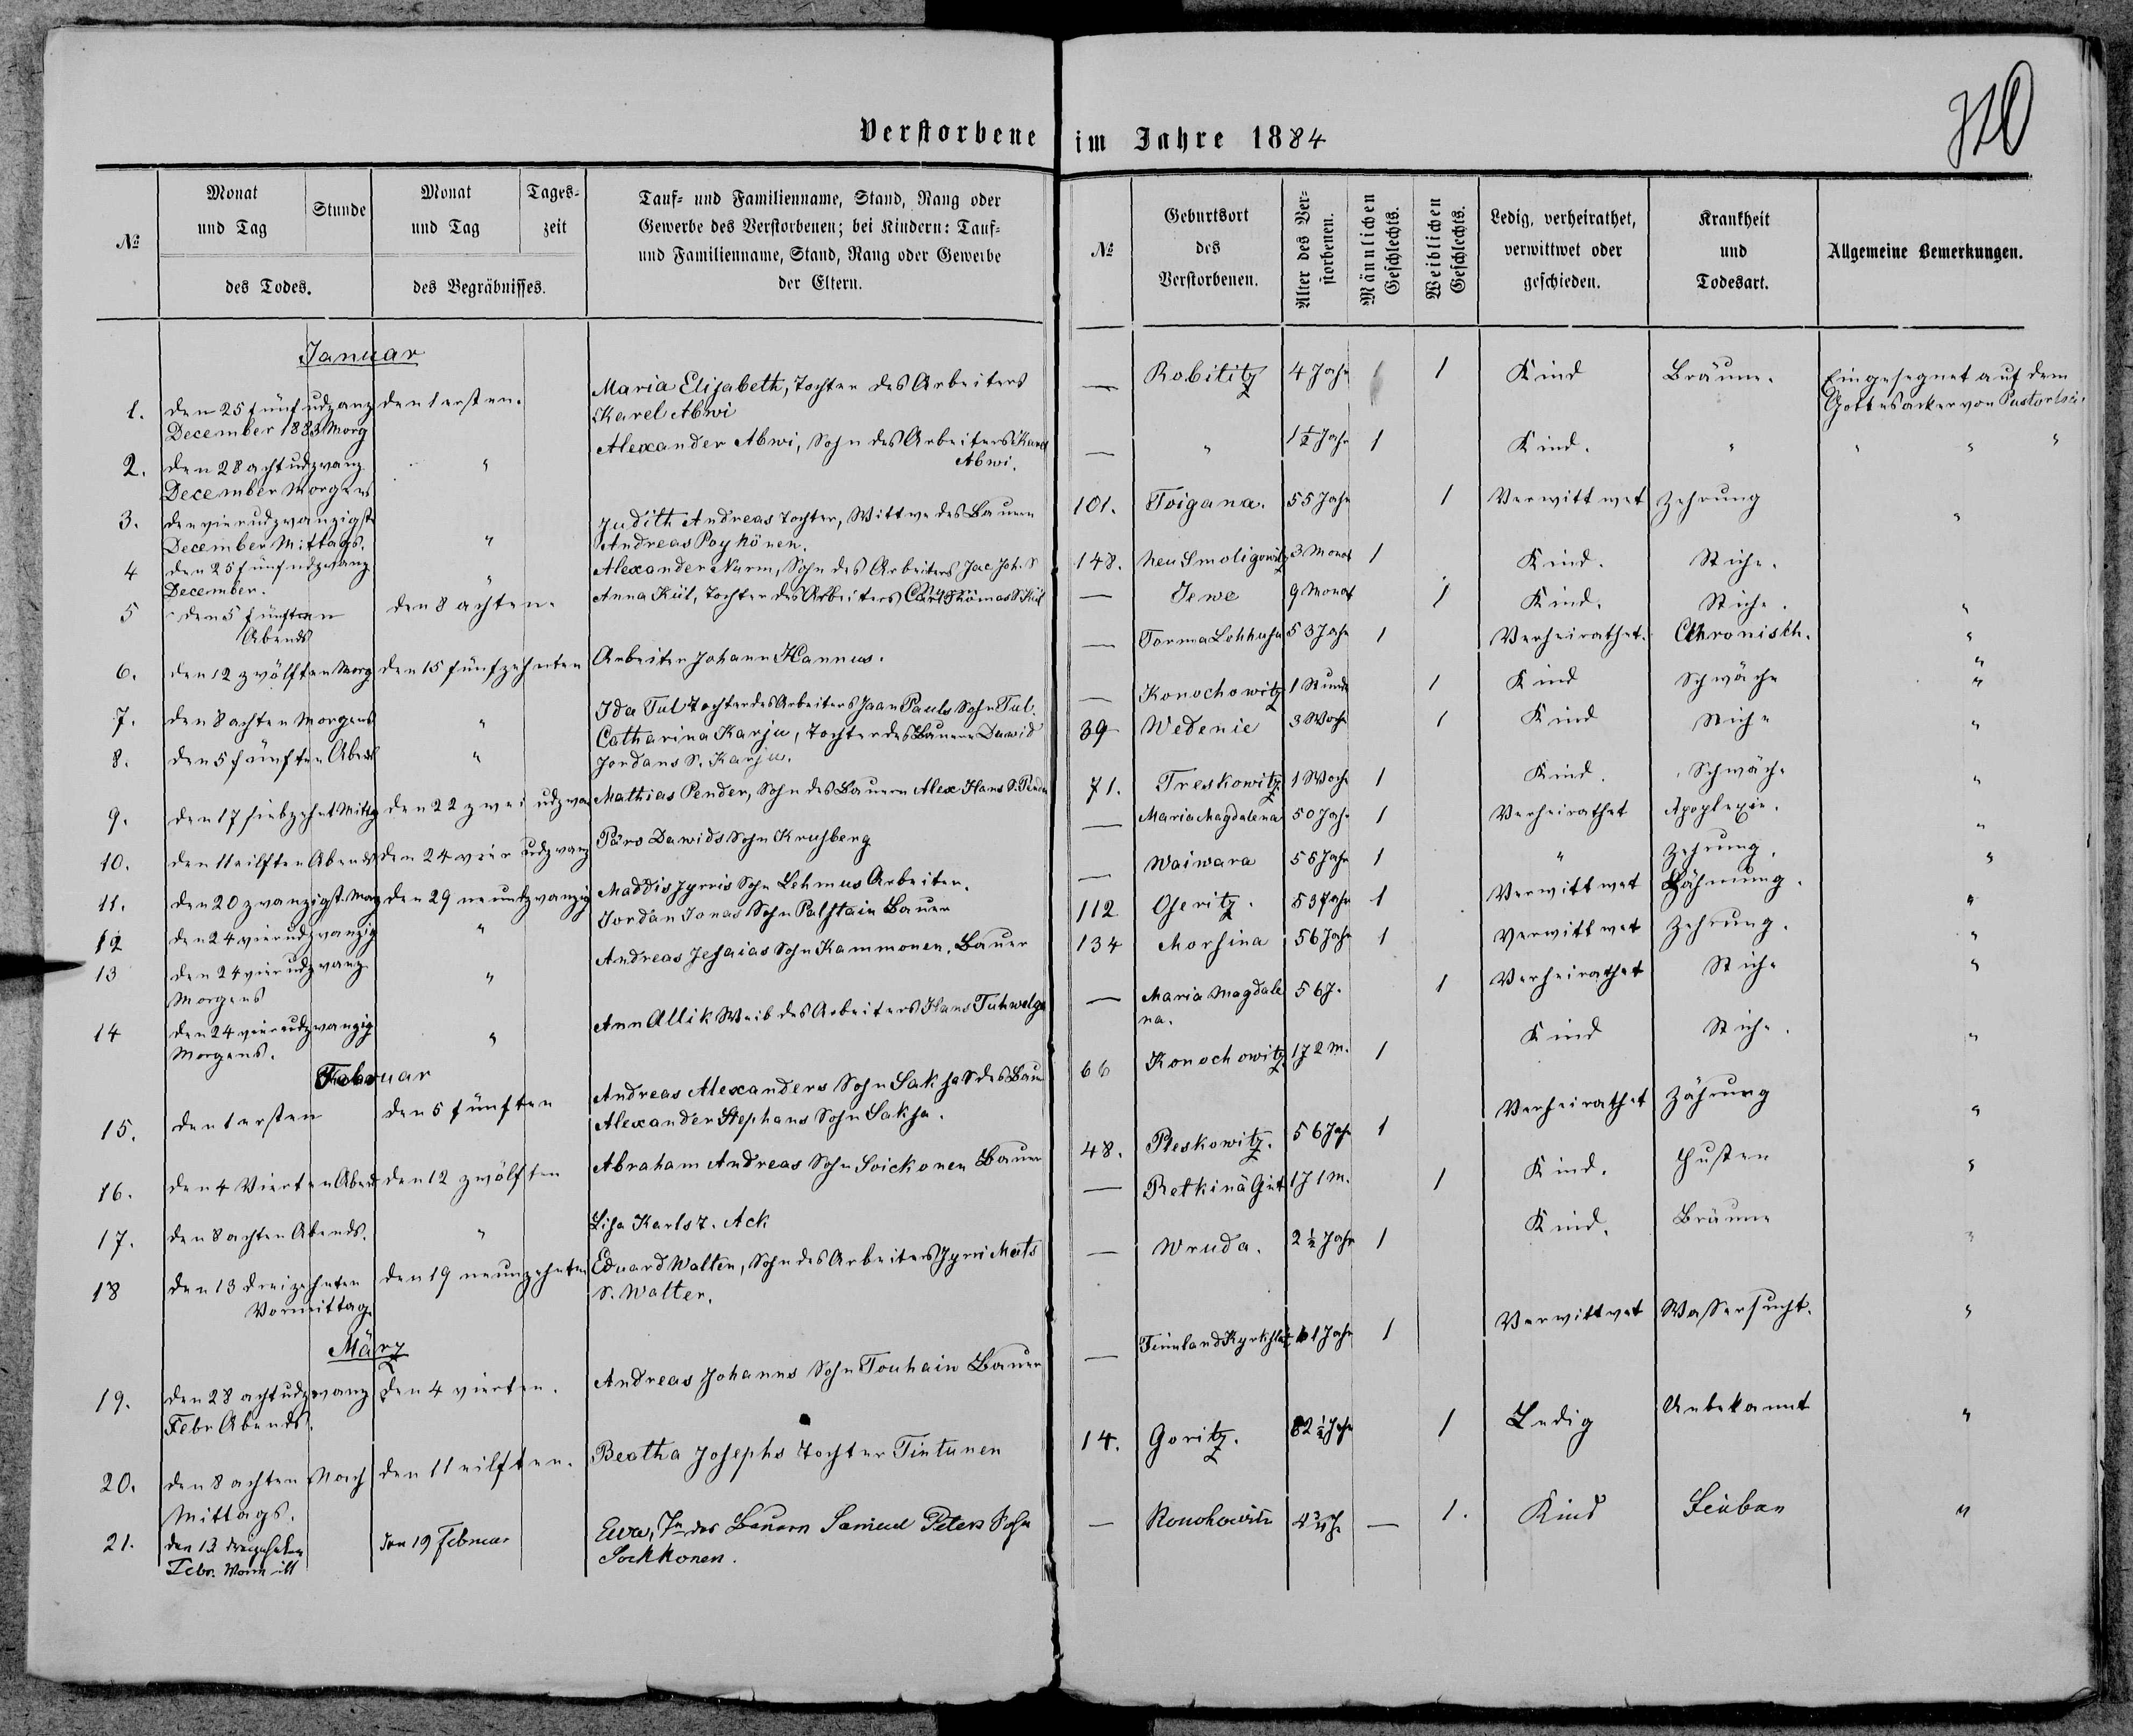 310
Verstorbene im Jahre 1884
№
Monat und Tag
Stunde
des Todes.
Monat und Tag
Tages-zeit
des Begräbnisses.
Tauf- und Familienname, Stand, Rang oder
Gewerbe des Verstorbenen; bei Kindern: Tauf-
und Familienname, Stand, Rang oder Gewerbe
der Eltern.
№
Geburtsort des Verstorbenen.
Alter des Ver-storbenen.
Männlichen Geschlechts.
Weiblichen Geschlechts.
Ledig, verheirathet, verwittwet oder geschieden.
Krankheit und Todesart.
Allgemeine Bemerkungen.
Januar
1. den 25 fünf udzwanz den 1 ersten. Maria Elisabeth, Tochter des Arbeiters — Robititz 4 Jahr 1 Kind Bräune. Eingesegnet auf dem
December 1883 Morg Karel Abwi Gottesacker von
2. den 28 acht udzwanz " Alexander Abwi, Sohn des Arbeiters Karel — " 1½ Jahr 1 Kind. " " " "
December Morgens Abwi.
3. den vierudzwanzigst Judith Andreas Tochter, Wittwe des Bauern 101. Toigana. 55 Jahr 1 Verwittwet Zehrung "
December Mittags. " Andreas Poykönen.
4 den 25 fünfudzwanz " Alexander Nurm, Sohn des Arbeiters Jac Joh. S 148. Neu Smoligowitz 3 Monat 1 Kind. Stiche.
December.
5 den 5 fünften den 8 achten. Anna Kül, Tochter des Arbeiters Carl — Jewe 9 Monat 1 Kind. Stiche. "
Abends
6. den 12 zwölften Morg den 15 fünfzehnten Arbeiter Johann Hannus. — Torma Lohhusu 53 Jahr 1 Verheirathet. Chronisch. "
7. den 8 achten Morgens " Ida Tul Tochter des Arbeiters Jaan Pauls Sohn Tul. — Konochowitz 1 Stunde 1 Kind Schwäche "
8. den 5 fünften Abends " Catharina Karju, Tochter des Bauern Dawid 39 Wedenie 3 Woch 1 Kind Stiche "
Jordans S. Karju.
9. den 17 siebzehnt Mittg den 22 zwei udzwa Mathias Pender, Sohn des Bauern Alex Hans S. Pender 71. Treskowitz 1 Woche 1 Kind. Schwäche "
10. den 11 eilften Abends den 24 vier udzwanz Pärs Dawids Sohn Kruhberg — Maria Magdalena 50 Jahr 1 Verheirathet Apoplexie. "
11. den 20 zwanzigst. Morg den 29 neunudzwanzig Maddis Jyrris Sohn Lehmus Arbeiter. — Waiwara 55 Jahr 1 " Zehrung. "
12 den 24 vierudzwanzig " Jordan Jonas Sohn Palstain Bauer 112 Geritz. 83 Jahr 1 Verwittwet Lähmung. "
13 den 24 vierudzwanz " Andreas Jesaias Sohn Kammonen, Bauer 134 Morsina 56 Jahr 1 Verwittwet Zehrung. "
Morgens
14 den 24 vierudzwanzig " Ann Allik Weib des Arbeiters Hans Tuhwelga — Maria Magdale 56 J. 1 Verheirathet Stiche "
Morgens. na.
Februar
15. den 1 ersten den 5 fünften Andreas Alexanders Sohn Saksa S des Bau 66 Konochowitz 1 J 2 M. 1 Kind Stiche. "
Alexander Stephans Sohn Saksa.
16. den 4 Vierten Abend den 12 zwölften Abraham Andreas Sohn Soickonen Bauer 48. Pleskowitz. 56 Jahr 1 Verheirathet Zährung "
17. den 8 achten Abends. " Lisa Karls T. Ack — Retkinä Gut 1 J 1 M. 1 Kind. Husten "
18 den 13 dreizehnten den 19 neunzehnten Eduard Walter, Sohn des Arbeiters Jyrri Mats — Wruda. 2½ Jahr 1 Kind. Bräune "
Vormittag. S. Walter.
März
19. den 28 achtudzwanz den 4 vierten. Andreas Johanns Sohn Touhain Bauer — Finnland 61 Jahr 1 Verwittwet Wassersucht. "
Febr Abends.
20. den 8 achten Nach den 11 eilften. Beatha Josephs Tochter Tintunen 14. Goritz. 82½ Jahr 1 Ledig Unbekannt "
Mittags.
21. den 13 dreizehnten den 19 Februar Ewa, Tr des Bauern Samuel Peters Sohn — — 1. Kind "
Febr. Sokkonen.